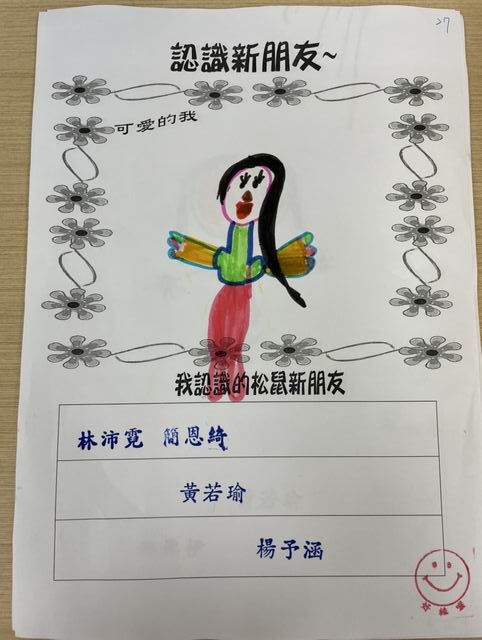 27
認識新朋友~
可愛的我
我認識的松鼠新朋友
林沛霓 簡恩綺
黃若瑜
楊予涵
好棒喔